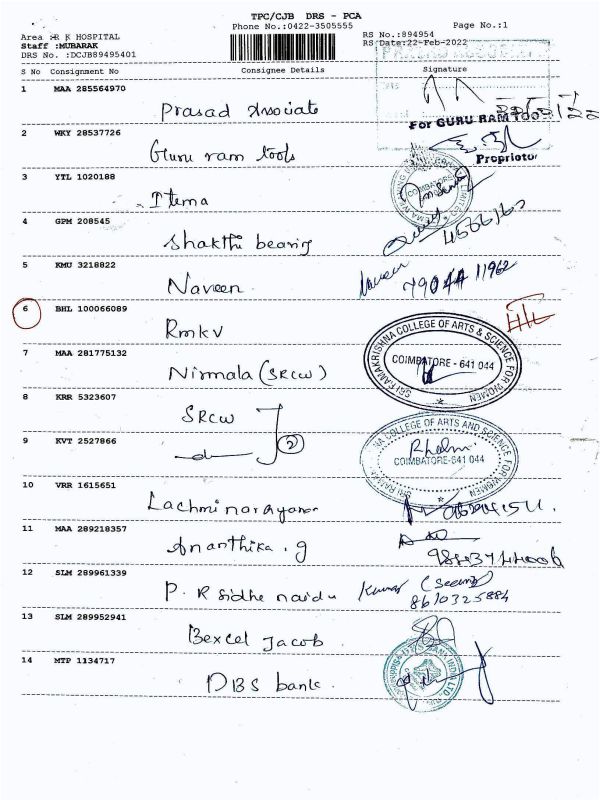 TPC/CJB DRS - PCA
Phone No.:0422-3505555
Page No.:1
Area :R K HOSPITAL
Staff :MUBARAK
DRS No. :DCJB89495401
RS No.:894954
RS Date:22-Feb-2022
S No Consignment No Consignee Details Signature
1 MAA 285564970
Prasad Associate
For GURU RAM TOOLS
2 WKY 28537726
Guru ram tools
Proprietor
3 YTL 1020188
Itema
COIMBATORE
4 GPM 208545
Shakthi bearing
5 KMU 3218822
Naveen
Naveen
6 BHL 100066089
Rmkv
SRI RAMAKRISHNA COLLEGE OF ARTS & SCIENCE FOR WOMEN
COIMBATORE - 641 044
7 MAA 281775132
Nirmala (SRCW)
8 KRR 5323607
SRCW
COLLEGE OF ARTS AND SCIENCE FOR WOMEN
COIMBATORE-641 044
9 KVT 2527866
2
10 VRR 1615651
Lachminarayanan
11 MAA 289218357
Ananthika . g
12 SLM 289961339
P. R Sidhe naidu
Kumar
8610325884
13 SLM 289952941
Bexcel Jacob
14 MTP 1134717
DBS bank.